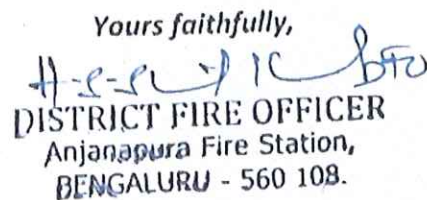 Yours faithfully,
DFO
DISTRICT FIRE OFFICER
Anjanapura Fire Station,
BENGALURU - 560 108.